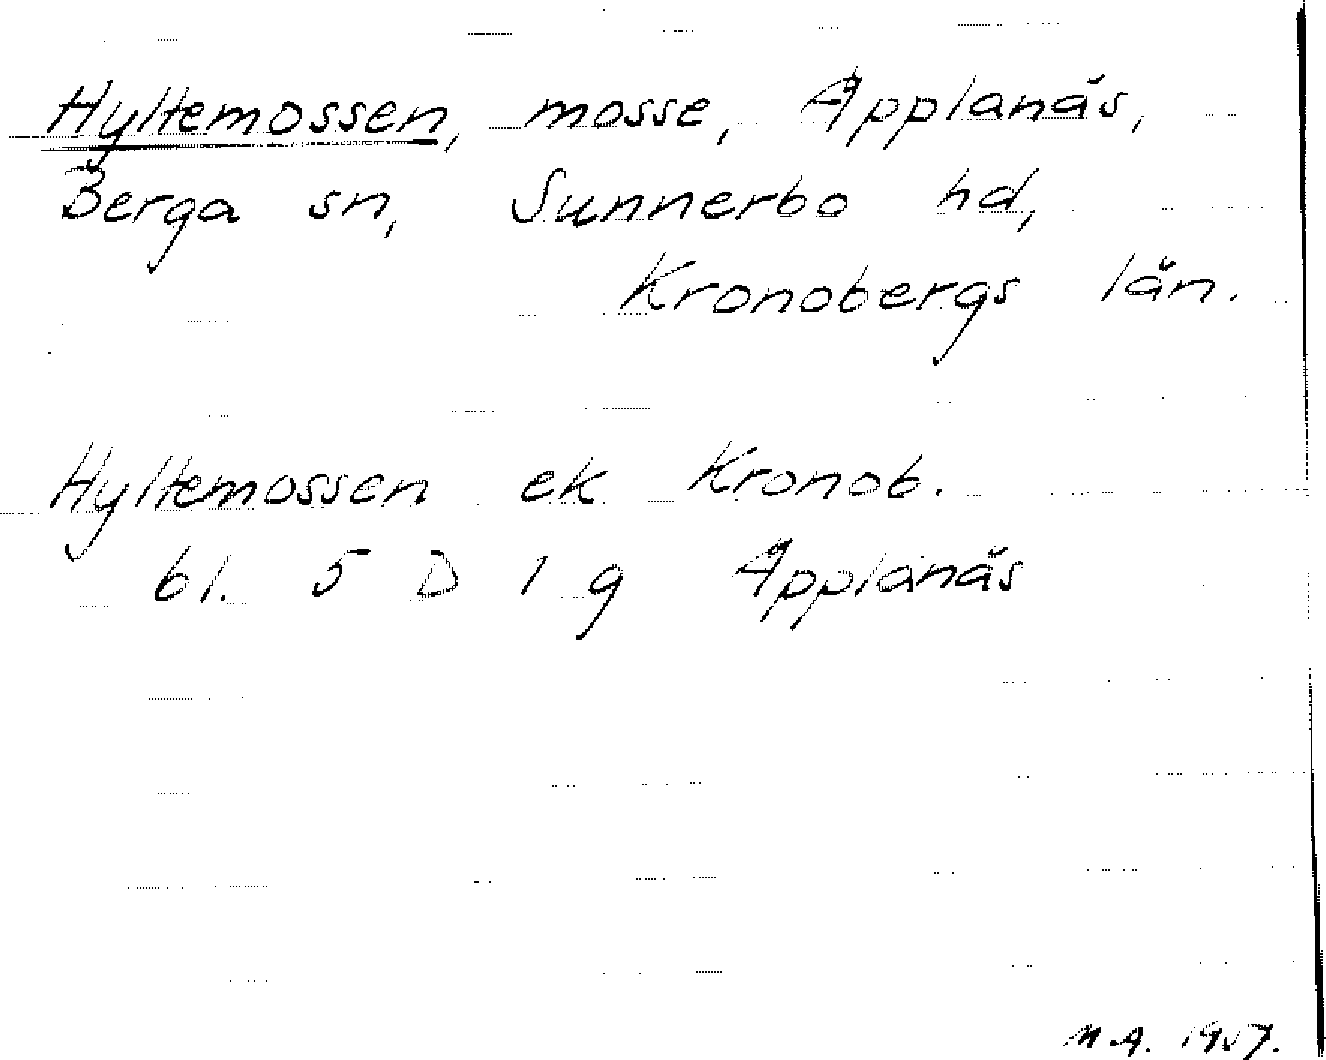 Hyltemossen, mosse, Äpplanäs,
Berga sn, Sunnerbo hd,
Kronobergs län.
Hyltemossen ek Kronob.
bl. 5 D 1 g Äpplanäs
M.A. 1957.